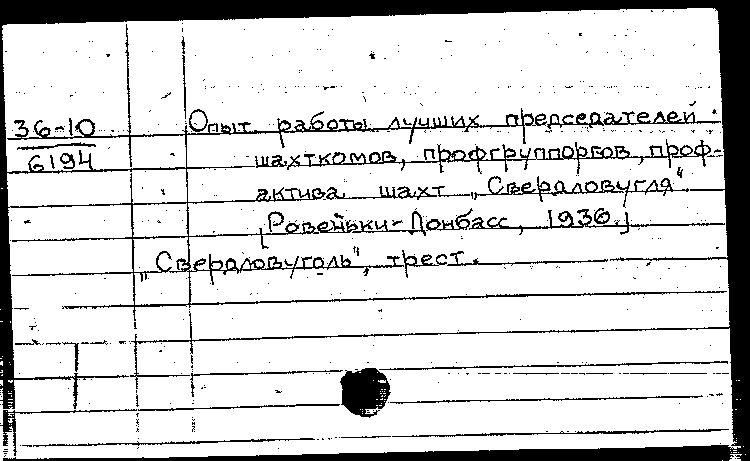 36-10
6194
Опыт работы лучших председателей
шахткомов, профгруппоргов, проф-
актива шахт „Свердловугля“.
[Ровеньки-Донбасс, 1936.]
„Свердловуголь“, трест.